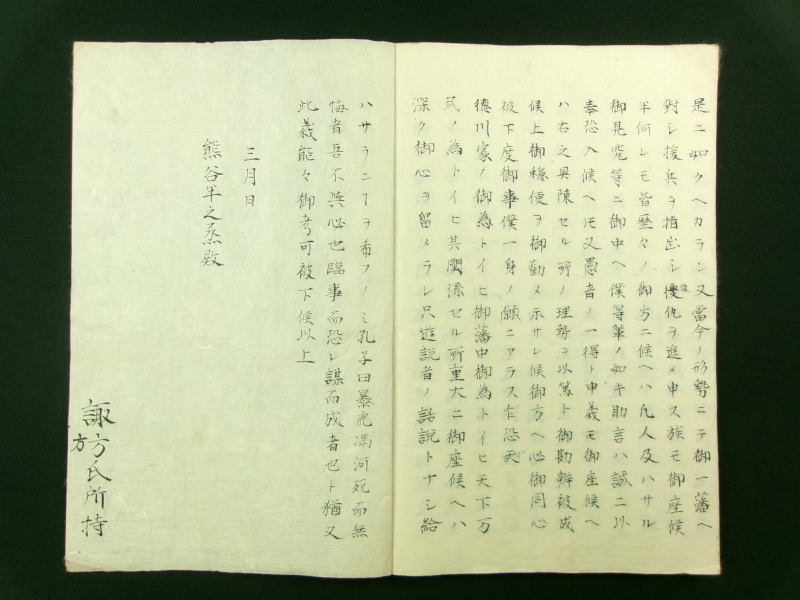 是ニ如クヘカラン又當今ノ形勢ニテ御一藩ヘ
對シ援兵ヲ指出シ復仇ヲ進メ申ス族モ御座候
半何レモ皆歴々ノ御方ニ候ヘハ凡人及ハサル
御見究等ニ御中ヘ僕等輩ノ如キ助言ハ誠ニ以
奉恐入候ヘ𪜈又愚者ノ一得ト申義モ御座候ヘ
ハ右之具陳セル所ノ理勢ヲ以篤ト御勘辨被成
候上御穏便ヲ御勸メ示サレ候御方ヘ心御同心
被下度御事僕一身ノ願ニアラス乍恐天
徳川家ノ御為トイヒ御藩中御為トイヒ天下万
民ノ為トイヒ其関係セル所重大ニ御座候ヘハ
深ク御心ヲ留メラレ只遊説者ノ話説トナシ給
ハサラン丁ヲ希フノミ孔子曰暴虎馮河死而無
悔者吾不與必也臨事而恐レ謀而成者也ト猶又
此義能々御考可被下候以上
三月日
熊谷半之丞殿
諏方氏所持
方